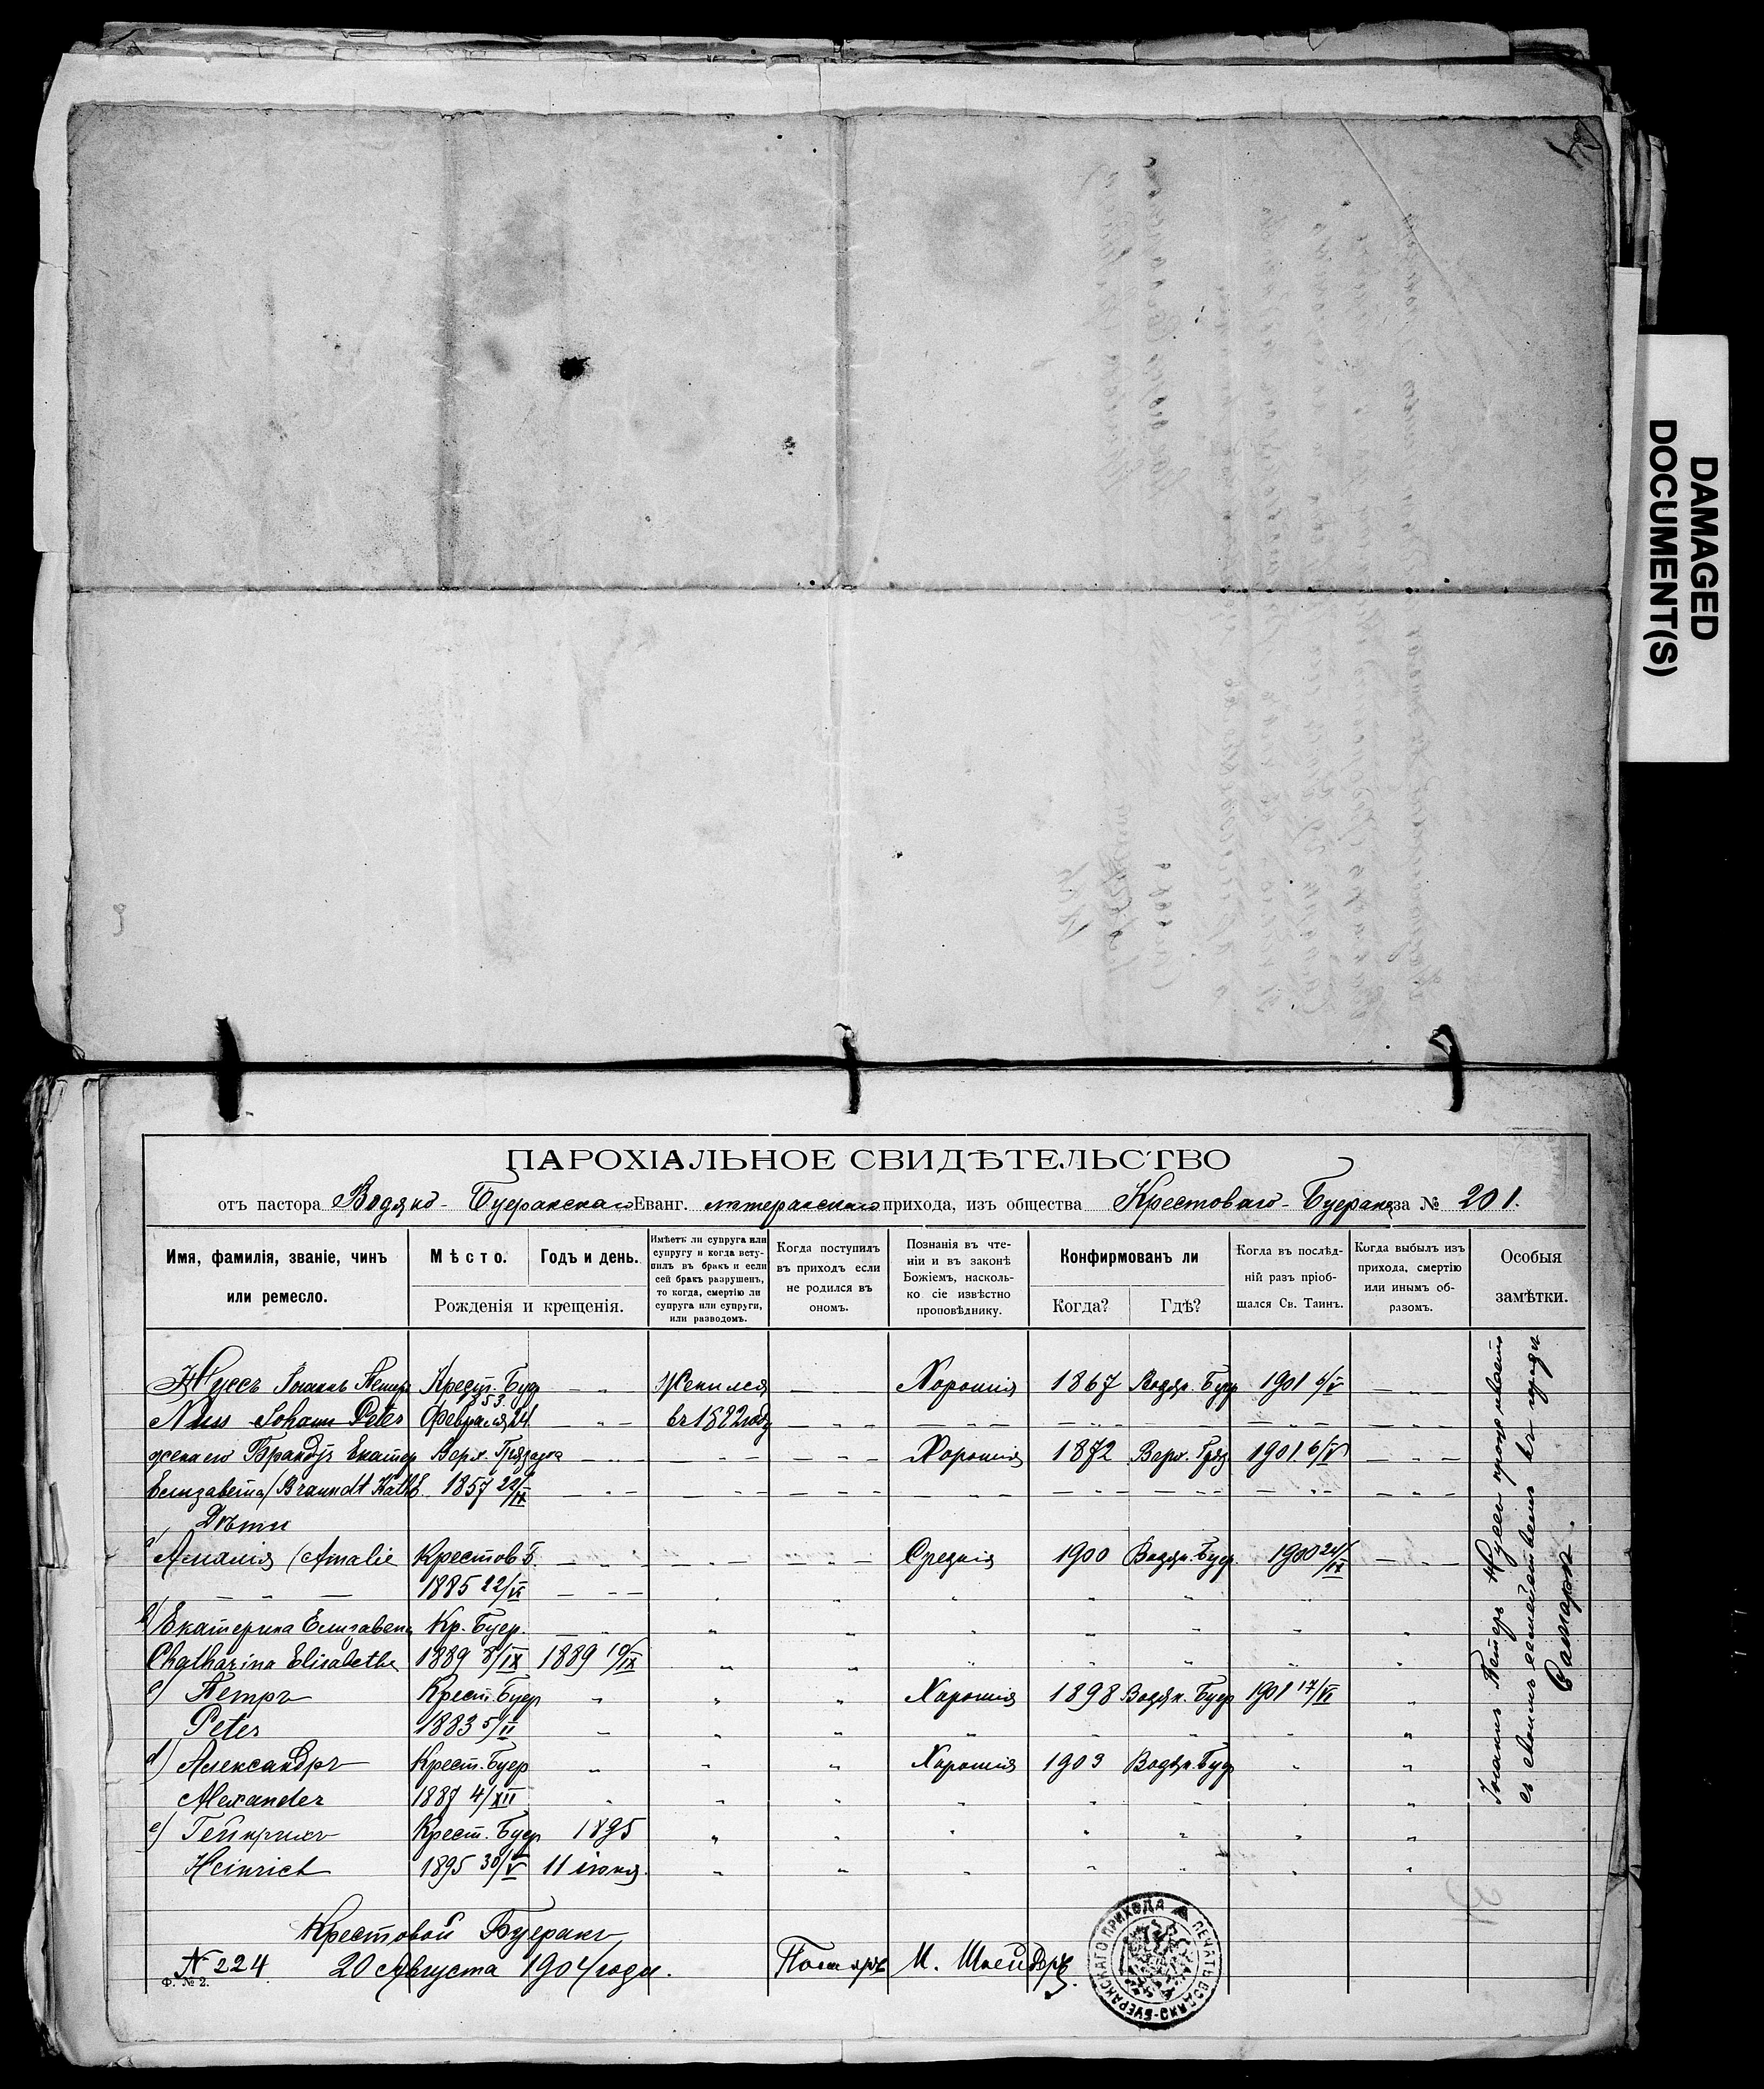 DAMAGED
DOCUMENT(S)
ПАРОХІАЛЬНОЕ СВИДѢТЕЛЬСТВО
отъ пастора Водяно-Буеракскаго Еванг. лютеранскаго прихода, изъ общества Крестоваго-Буерака за № 201.
Имя, фамилія, званіе, чинъ или ремесло.
Мѣсто.
Годъ и день.
Рожденія и крещенія.
Имѣетъ ли супруга или супругу и когда вступилъ въ бракъ и если сей бракъ разрушенъ, то когда, смертію ли супруга или супруги, или разводомъ.
Когда поступилъ въ приходъ если не родился въ ономъ.
Познанія въ чтеніи и въ законѣ Божіемъ, насколько сіе извѣстно проповѣднику.
Конфирмованъ ли
Когда?
Гдѣ?
Когда въ послѣдній разъ пріобщался Св. Таинъ.
Когда выбылъ изъ прихода, смертію или инымъ образомъ.
Особыя замѣтки.
Нуссъ Іоганнъ Петеръ Крест. Буер Женился Хорошія 1867 Водян. Буер 1901 6/V
Nuss Johann Peter 53 Февраля 24. въ 1882 году
жена его Брандтъ Екатер Верх. Грязнуха Хорошія 1872 Верх. Гряз 1901 6/V
Елизавета/Branndt Kath E. 1857 22/IX
Дѣти
a/ Амалія (Amalie Крестов Б. Средня 1900 Водян. Буер. 1900 24/IX
1885 22/VI
b/ Екатерина Елизавета Кр. Буер.
Chatharina Elisabethe 1889 8/IX 1889 10/IX
c) Петръ Крест. Буер Хорошія 1898 Водян. Буер 1901 17/VI
Peter 1883 5/II
d) Александръ Крест. Буер Хорошія 1903 Водян. Буер
Alexander 1887 4/XII
e) Гейнрихъ Крест. Буер 1895
Heinrich 1895 30/V 11 іюня.
Іоганнъ Петеръ Нуссъ проживаетъ
съ своимъ семействомъ въ городѣ
Самарѣ.
Крестовой Буеракъ
№ 224 20 Августа 1904 года. Пасторъ И. Шнейдеръ.
Ф. № 2.
ПЕЧАТЬ ВОДЯНО-БУЕРАКСКАГО ПРИХОДА